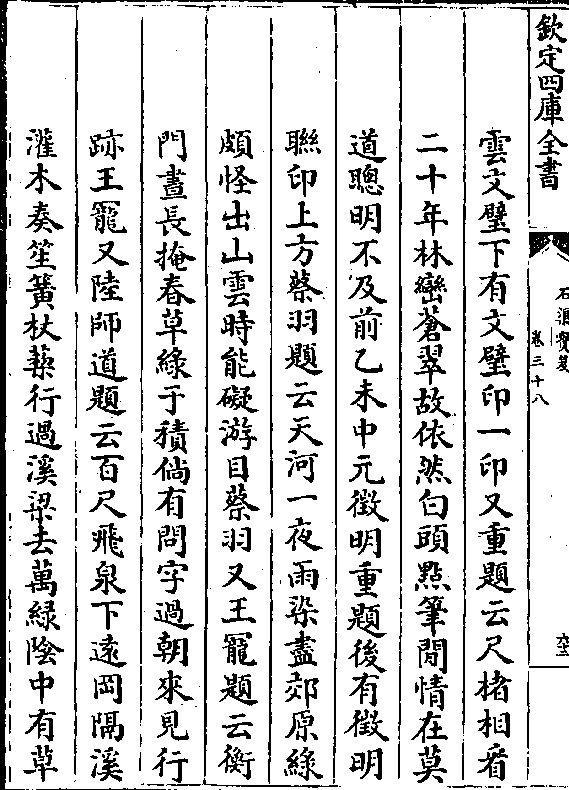 欽定四庫全書
石渠寶笈
卷三十八
雲文璧下有文璧印一印又重題云尺楮相看
二十年林巒蒼翠故依然白頭㸃筆閒情在莫
道聰明不及前乙未中元徵明重題後有徵明
聨印上方蔡羽題云天河一夜雨染盡郊原綠
頗怪出山雲時能礙游目蔡羽又王寵題云衡
門晝長掩春草綠于積倘有問字過朝來見行
跡王寵又陸師道題云百尺飛泉下遠岡隔溪
灌木奏笙簧杖藜行過溪梁去萬緑隂中有草